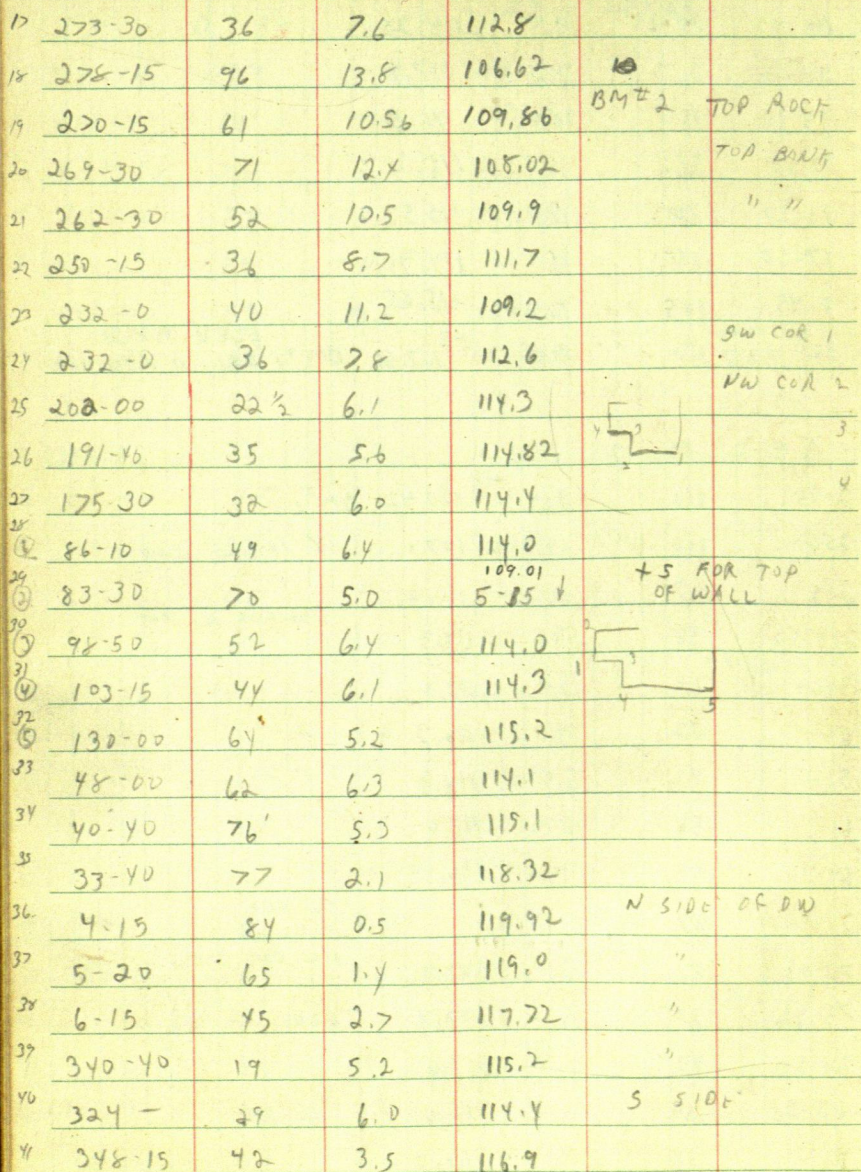 17 273-30 36 7.6 112.8
18 278-15 96 13.8 106.62
BM#2 TOP ROCK
19 270-15 61 10.56 109.86
TOP BANK
20 269-30 71 12.4 108.02
21 262-30 52 10.5 109.9 " "
22 250-15 36 8.7 111.7
23 232-0 40 11.2 109.2
SW COR 1
24 232-0 36 7.8 112.6
NW COR 2
25 202-00 22½ 6.1 114.3
3
4 3
26 191-40 35 5.6 114.82
2 1
4
27 175-30 32 6.0 114.4
28
① 86-10 49 6.4 114.0
29 109.01 +5 FOR TOP
② 83-30 70 5.0 5-15 ↓ OF WALL
30
③ 98-50 52 6.4 114.0
2
31 1 3
④ 103-15 44 6.1 114.3
4 5
32
⑤ 130-00 64 5.2 115.2
33 48-00 62 6.3 114.1
34 40-40 76' 5.3 115.1
35 33-40 77 2.1 118.32
36. 4-15 84 0.5 119.92 N SIDE OF DW
37 5-20 65 1.4 119.0 "
38 6-15 45 2.7 117.72 "
39 340-40 19 5.2 115.2 "
40 324 - 29 6.0 114.4 S SIDE
41 348-15 42 3.5 116.9